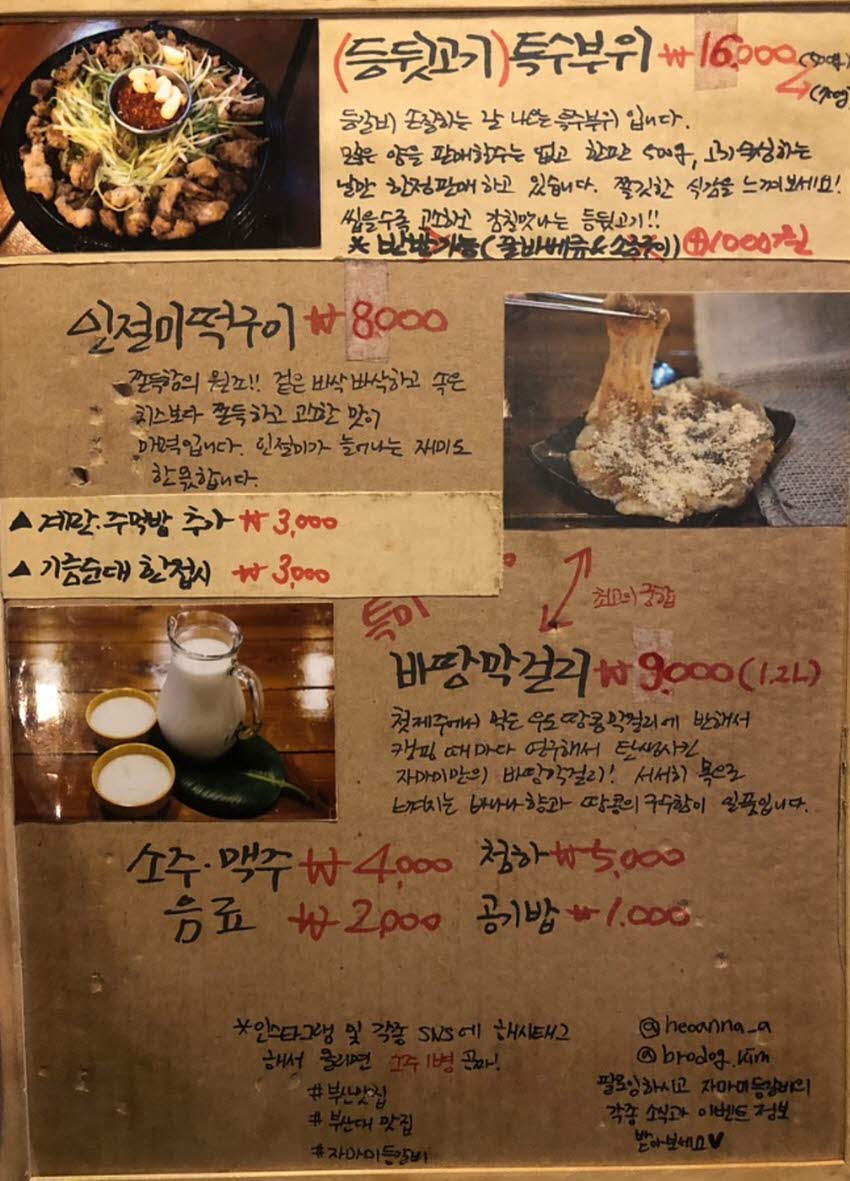 (등뒷고기)특수부위 ₩16,000
등갈비 손질하는 날 나오는 특수부위 입니다.
많은 양을 판매할수는 없고 한판 500g, 고기 숙성하는
날만 한정판매 하고 있습니다. 쫄깃한 식감을 느껴보세요!
씹을수록 고소하고 감칠맛나는 등뒷고기!!
* 반반가능 ⊕1000원
인절미떡구이 ₩8,000
쫀득함의 원조!! 겉은 바삭바삭하고 속은
치즈보다 쫀득하고 고소한 맛이
매력입니다. 인절미가 늘어나는 재미도
한몫합니다.
▲ 계란·주먹밥 추가 ₩3,000
▲ 기름순대 한접시 ₩3,000
특미
최고의 궁합
바땅막걸리 ₩9,000(1.2L)
첫 제주에서 먹은 우도 땅콩막걸리에 반해서
캠핑 때마다 연구해서 탄생시킨
자마미만의 바땅막걸리! 서서히 목으로
느껴지는 바나나향과 땅콩의 구수함이 일품입니다.
소주·맥주 ₩4,000 청하 ₩5,000
음료 ₩2,000 공기밥 ₩1,000
*인스타그램 및 각종 SNS에 해시태그
해서 올리면 소주1병 공짜!
#부산맛집
#부산대 맛집
#자마미등갈비
@heoanna_a
@brodog.kim
팔로잉하시고 자마미등갈비의
각종 소식과 이벤트 정보
받아보세요♥